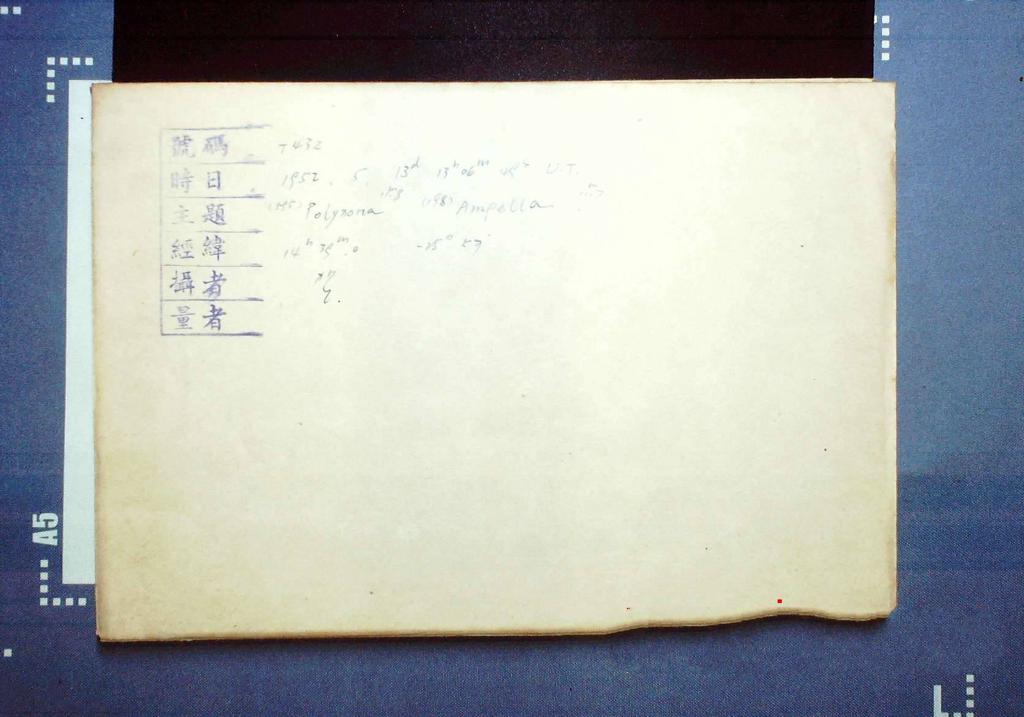 號碼 T432
時日 1952. 5. 13d 13h 06m U.T.
主題 Polyxona (198) Ampella
經緯 14h 39m.0 -25° 57'
攝者
量者
A5